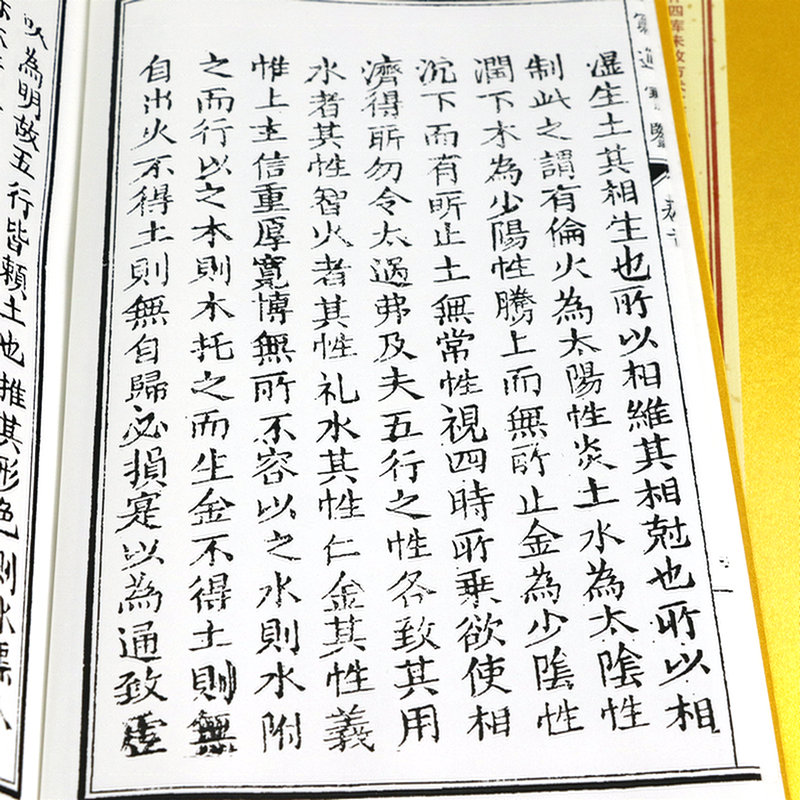 湿生土其相生也所以相維其相尅也所以相
制此之謂有倫火為太陽性炎土水為太陰性
潤下木為少陽性騰上而無所止金為少陰性
沉下而有所止土無常性視四時所乗欲使相
濟得所勿令太過弗及夫五行之性各致其用
水者其性智火者其性礼水其性仁金其性義
惟土主信重厚寬博無所不容以之水則水附
之而行以之木則木托之而生金不得土則無
自出火不得土則無自歸必損寔以為通致虛
以為明故五行皆頼土也推其形色則水漂